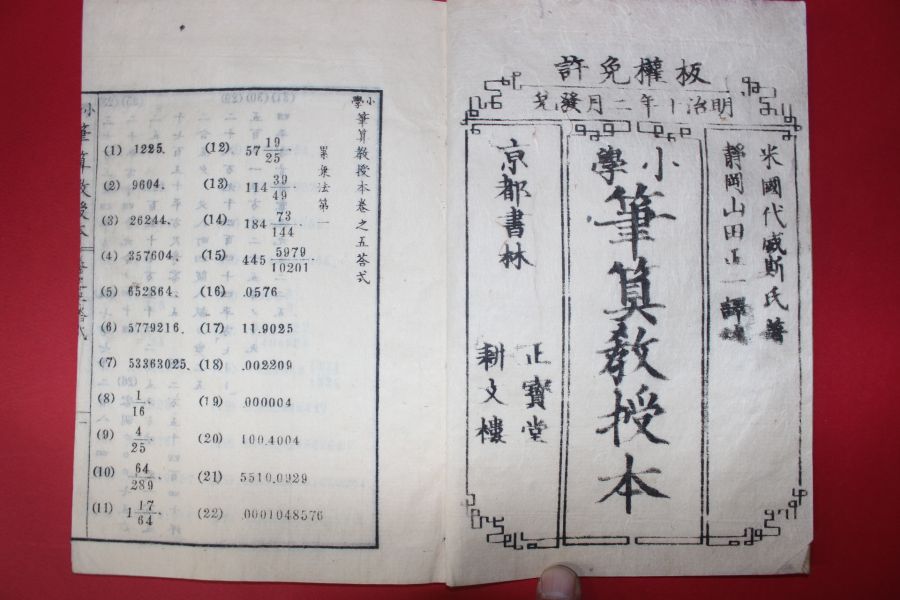 板權免許
明治十年二月發兌
米國代威斯氏著
静岡山田正一譯
小學
筆算教授本
京都書林
正寶堂
耕文樓
小學筆算教授本卷之五答式
累乗法第一
(1) 1225.
(2) 9604.
(3) 26244.
(4) 357604.
(5) 652864.
(6) 5779216.
(7) 53363025.
(8) 1/16.
(9) 4/25
(10) 64/289.
(11) 1 17/64.
(12) 57 19/25.
(13) 114 39/49.
(14) 184 73/144.
(15) 445 5979/10201.
(16) .0576
(17) 11.9025
(18) .002209
(19) .000004
(20) 100.4004
(21) 5510.0929
(22) .0001048576
筆算教授本